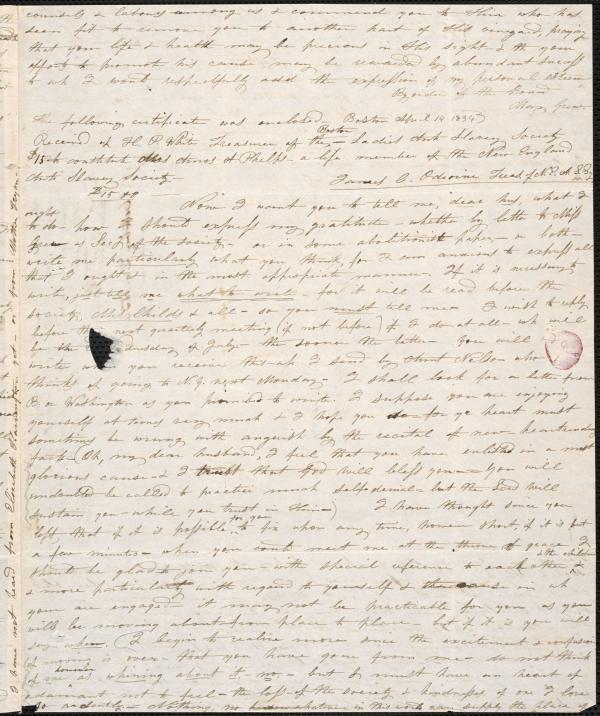 counsels & labours among us & commend you to Him who has
seen fit to remove you to another part of His vineyard, praying
that your life & health may be precious in His sight & tht your
efforts to promote his cause may be rewarded by abundant success
to wh I would respectfully add the expression of my personal esteem
By order of the Board
Mary Grew
The following certificate was enclosed. Boston April 14 1834
Received of H. P. White Treasurer of the Boston Ladies Anti Slavery Society
$15 to constitute Mrs Amos A Phelps a life member of the New England
Anti Slavery Society
$15.00 James C. Odiorne Treas of N. E. A. S. S.
Now I want you to tell me, dear hus, what I
ought to do - how I should express my gratitude - whether by lettr to Miss
Grew as Sec. of the society - or in some abolitionist paper - or both -
write me particularly what you think, for I am anxious to express all
that I ought & in the most appropriate manner. If it is necessary to
write, just tell me what to write - for it will be read before the
society, Mrs Childs & all - so you must tell me - I wish to reply
before the next quarterly meeting (if not before) if I do at all - wh will
be the Wednesday of July - the sooner the better - You will
write when you receive this wh I send by Aunt Nelson who
thinks of going to N.Y. next Monday - I shall look for a letter from
B. or Washington as you promised to write. I suppose you are enjoying
yourself at times very much & I hope you do - for ye heart must
sometimes be wrung with anguish by the recital of new heartrending
facts - Oh, my dear husband, I feel that you have enlisted in a most
glorious cause & I trust that God will bless you - You will
undoubted be called to practice much selfdenial - but the Lord will
sustain you - while you trust in Him - I have thought since you
left, that if it is possible for you to fix upon any time, however short, if it is but
a few minutes - when you could meet me at the throne of grace I
should be glad to join you - with special reference to each other & the children
& more particularly with regard to yourself & the cause in wh
you are engaged - it may not be practicable for you as you
will be moving about from place to place - but if it is you will
say when. I begin to realize more since the excitement & confusion
of moving is over - that you have gone from me - do not think
of me however as whining about it, no - but I must have an heart of
adamant not to feel - the loss of the society & kindness of one I love
so ardently - Nothing, no in this world can supply the place of
I have not heard from Elizabeth - or from Mother